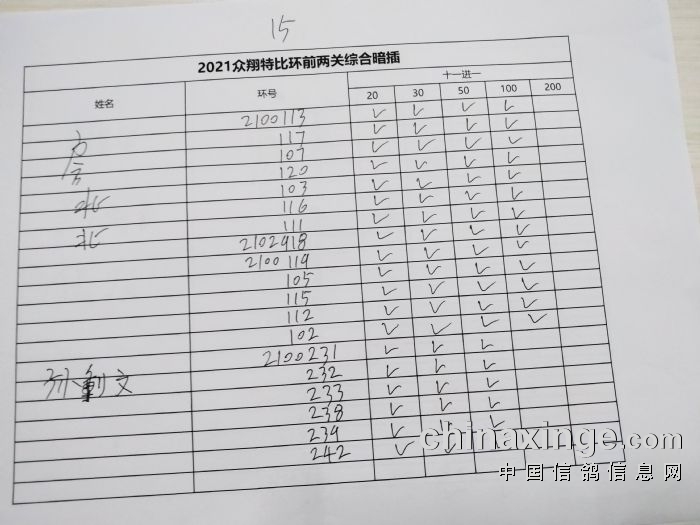 15
2021众翔特比环前两关综合暗插
姓名 环号 十一进一
20 30 50 100 200
2100113 ✓ ✓ ✓ ✓
117 ✓ ✓ ✓ ✓
107 ✓ ✓ ✓ ✓
120 ✓ ✓ ✓ ✓
103 ✓ ✓ ✓ ✓
116 ✓ ✓ ✓ ✓
111 ✓ ✓ ✓ ✓
2102918 ✓ ✓ ✓ ✓
2100119 ✓ ✓ ✓ ✓
105 ✓ ✓ ✓ ✓
115 ✓ ✓ ✓ ✓
112 ✓ ✓ ✓ ✓
102 ✓ ✓ ✓ ✓
2100231 ✓ ✓ ✓
232 ✓ ✓ ✓
233 ✓ ✓ ✓
238 ✓ ✓ ✓
239 ✓ ✓ ✓
242 ✓ ✓
chinaxinge.com
中国信鸽信息网